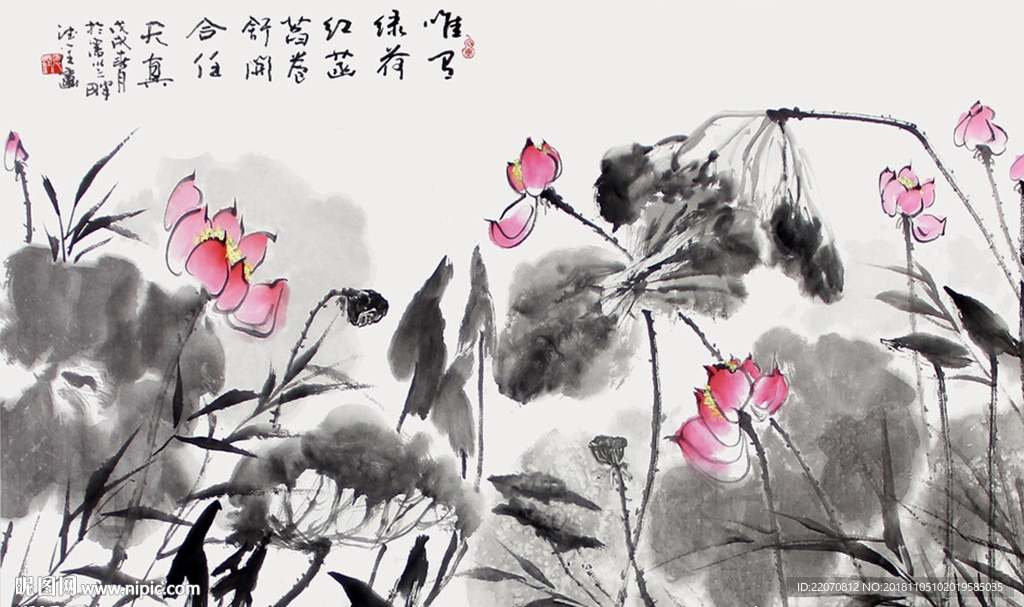 唯有
绿荷
红菡
萏卷
舒開
合任
天真
戊戌春月
昵图网 www.nipic.com
ID:22070812 NO:20181105102019585035